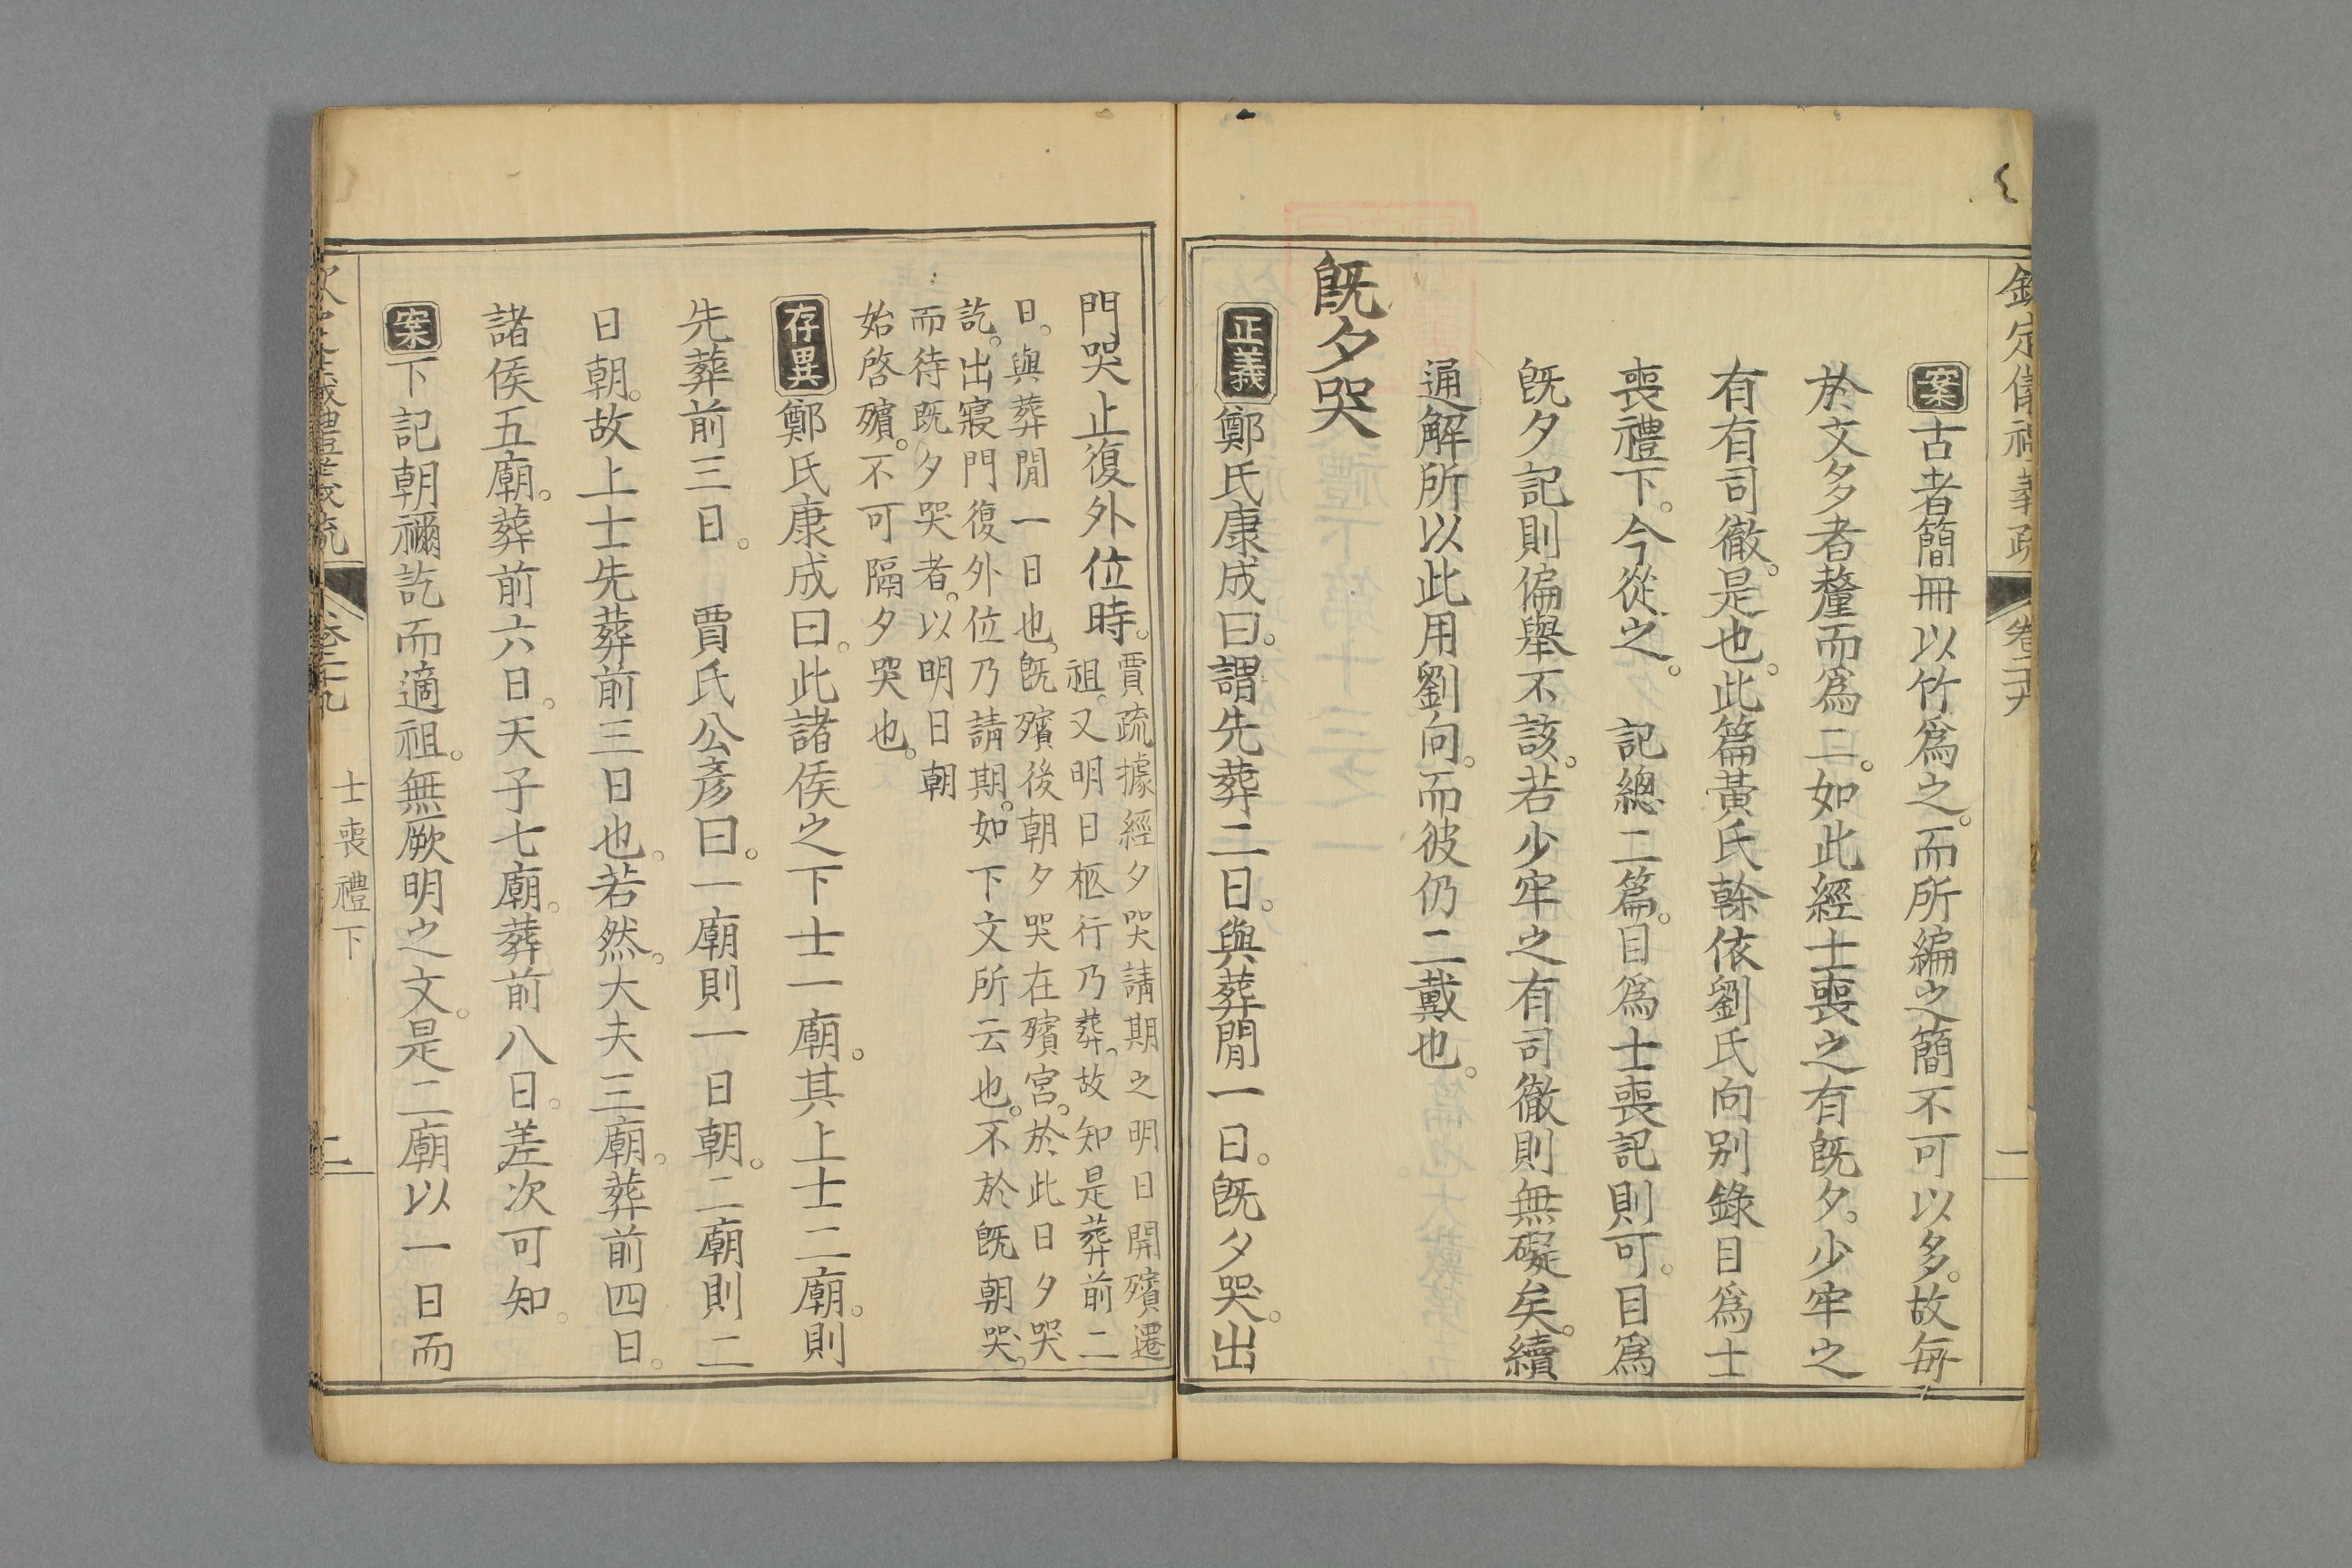 欽定儀禮義疏 卷二十九 一
案古者簡冊以竹爲之。而所編之簡不可以多。故每
於文多者釐而爲二。如此經士喪之有旣夕。少牢之
有有司徹。是也。此篇黃氏榦依劉氏向别錄目爲士
喪禮下。今從之。 記總二篇。目爲士喪記則可。目爲
旣夕記則偏舉不該。若少牢之有司徹則無礙矣。續
通解所以此用劉向。而彼仍二戴也。
旣夕哭
正義鄭氏康成曰。謂先葬二日。與葬閒一日。旣夕哭。出
門哭止復外位時。賈疏據經夕哭請期之明日開殯遷
祖。又明日柩行乃葬。故知是葬前二
日。與葬閒一日也。旣殯後朝夕哭在殯宮。於此日夕哭
訖。出寢門復外位乃請期。如下文所云也。不於旣朝哭。
而待旣夕哭者。以明日朝
始啓殯。不可隔夕哭也。
存異鄭氏康成曰。此諸侯之下士一廟。其上士二廟。則
先葬前三日。 賈氏公彥曰。一廟則一日朝。二廟則二
日朝。故上士先葬前三日也。若然。大夫三廟。葬前四日。
諸侯五廟。葬前六日。天子七廟。葬前八日。差次可知。
案下記朝禰訖而適祖。無厥明之文。是二廟以一日而
卷二十九 士喪禮下 二